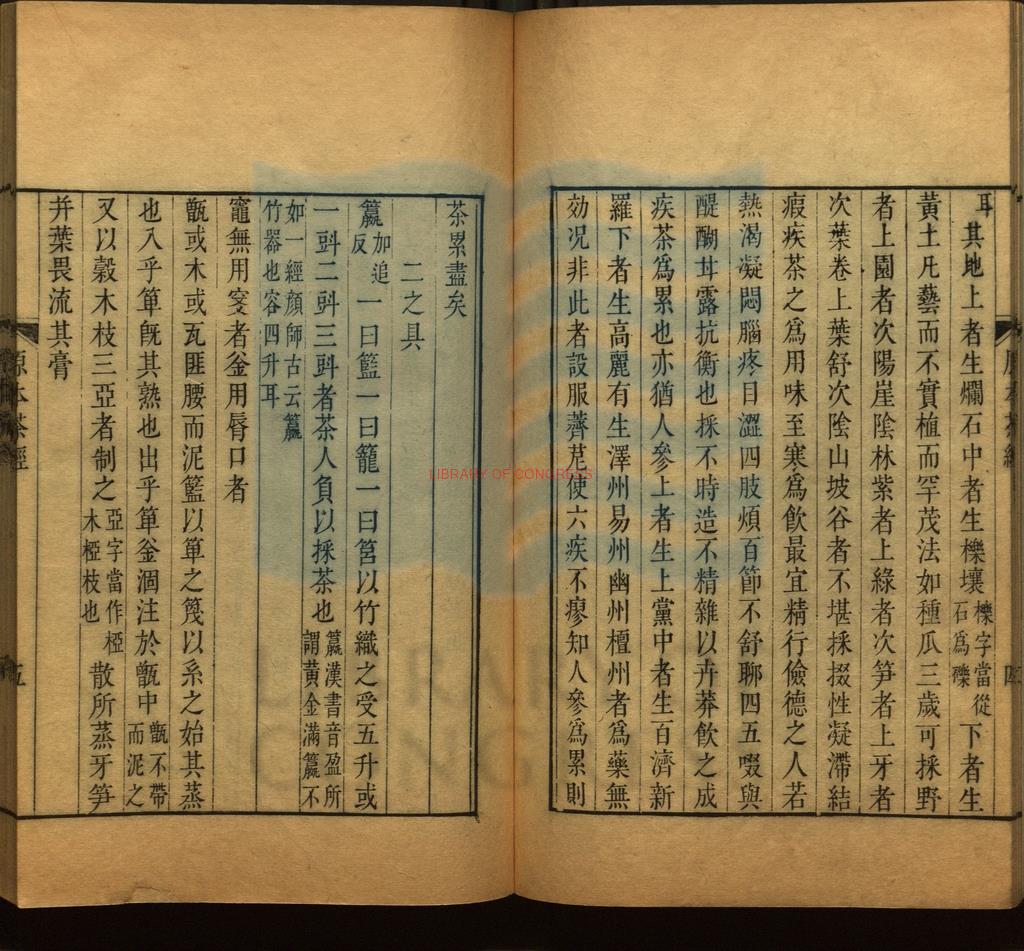 耳其地上者生爛石中者生櫟壤櫟字當從石爲礫下者生
黃土凡藝而不實植而罕茂法如種瓜三歲可採野
者上園者次陽崖陰林紫者上綠者次笋者上牙者
次葉卷上葉舒次陰山坡谷者不堪採掇性凝滯結
瘕疾茶之爲用味至寒爲飲最宜精行儉德之人若
熱渴凝悶腦疼目澀四肢煩百節不舒聊四五啜與
醍醐甘露抗衡也採不時造不精雜以卉莽飲之成
疾茶爲累也亦猶人參上者生上黨中者生百濟新
羅下者生高麗有生澤州易州幽州檀州者爲藥無
効况非此者設服薺苨使六疾不瘳知人參爲累則
茶累盡矣
二之具
籯加追反一曰籃一曰籠一曰筥以竹織之受五升或
一㪷二㪷三㪷者茶人負以採茶也籯漢書音盈所謂黃金滿籯不
如一經顏師古云籯竹器也容四升耳
竈無用突者釜用脣口者
甑或木或瓦匪腰而泥籃以箄之篾以系之始其蒸
也入乎箄旣其熟也出乎箄釜涸注於甑中甑不帶而泥之
又以榖木枝三亞者制之亞字當作椏木椏枝也散所蒸牙笋
并葉畏流其膏
原本茶經
五
LIBRARY OF CONGRESS